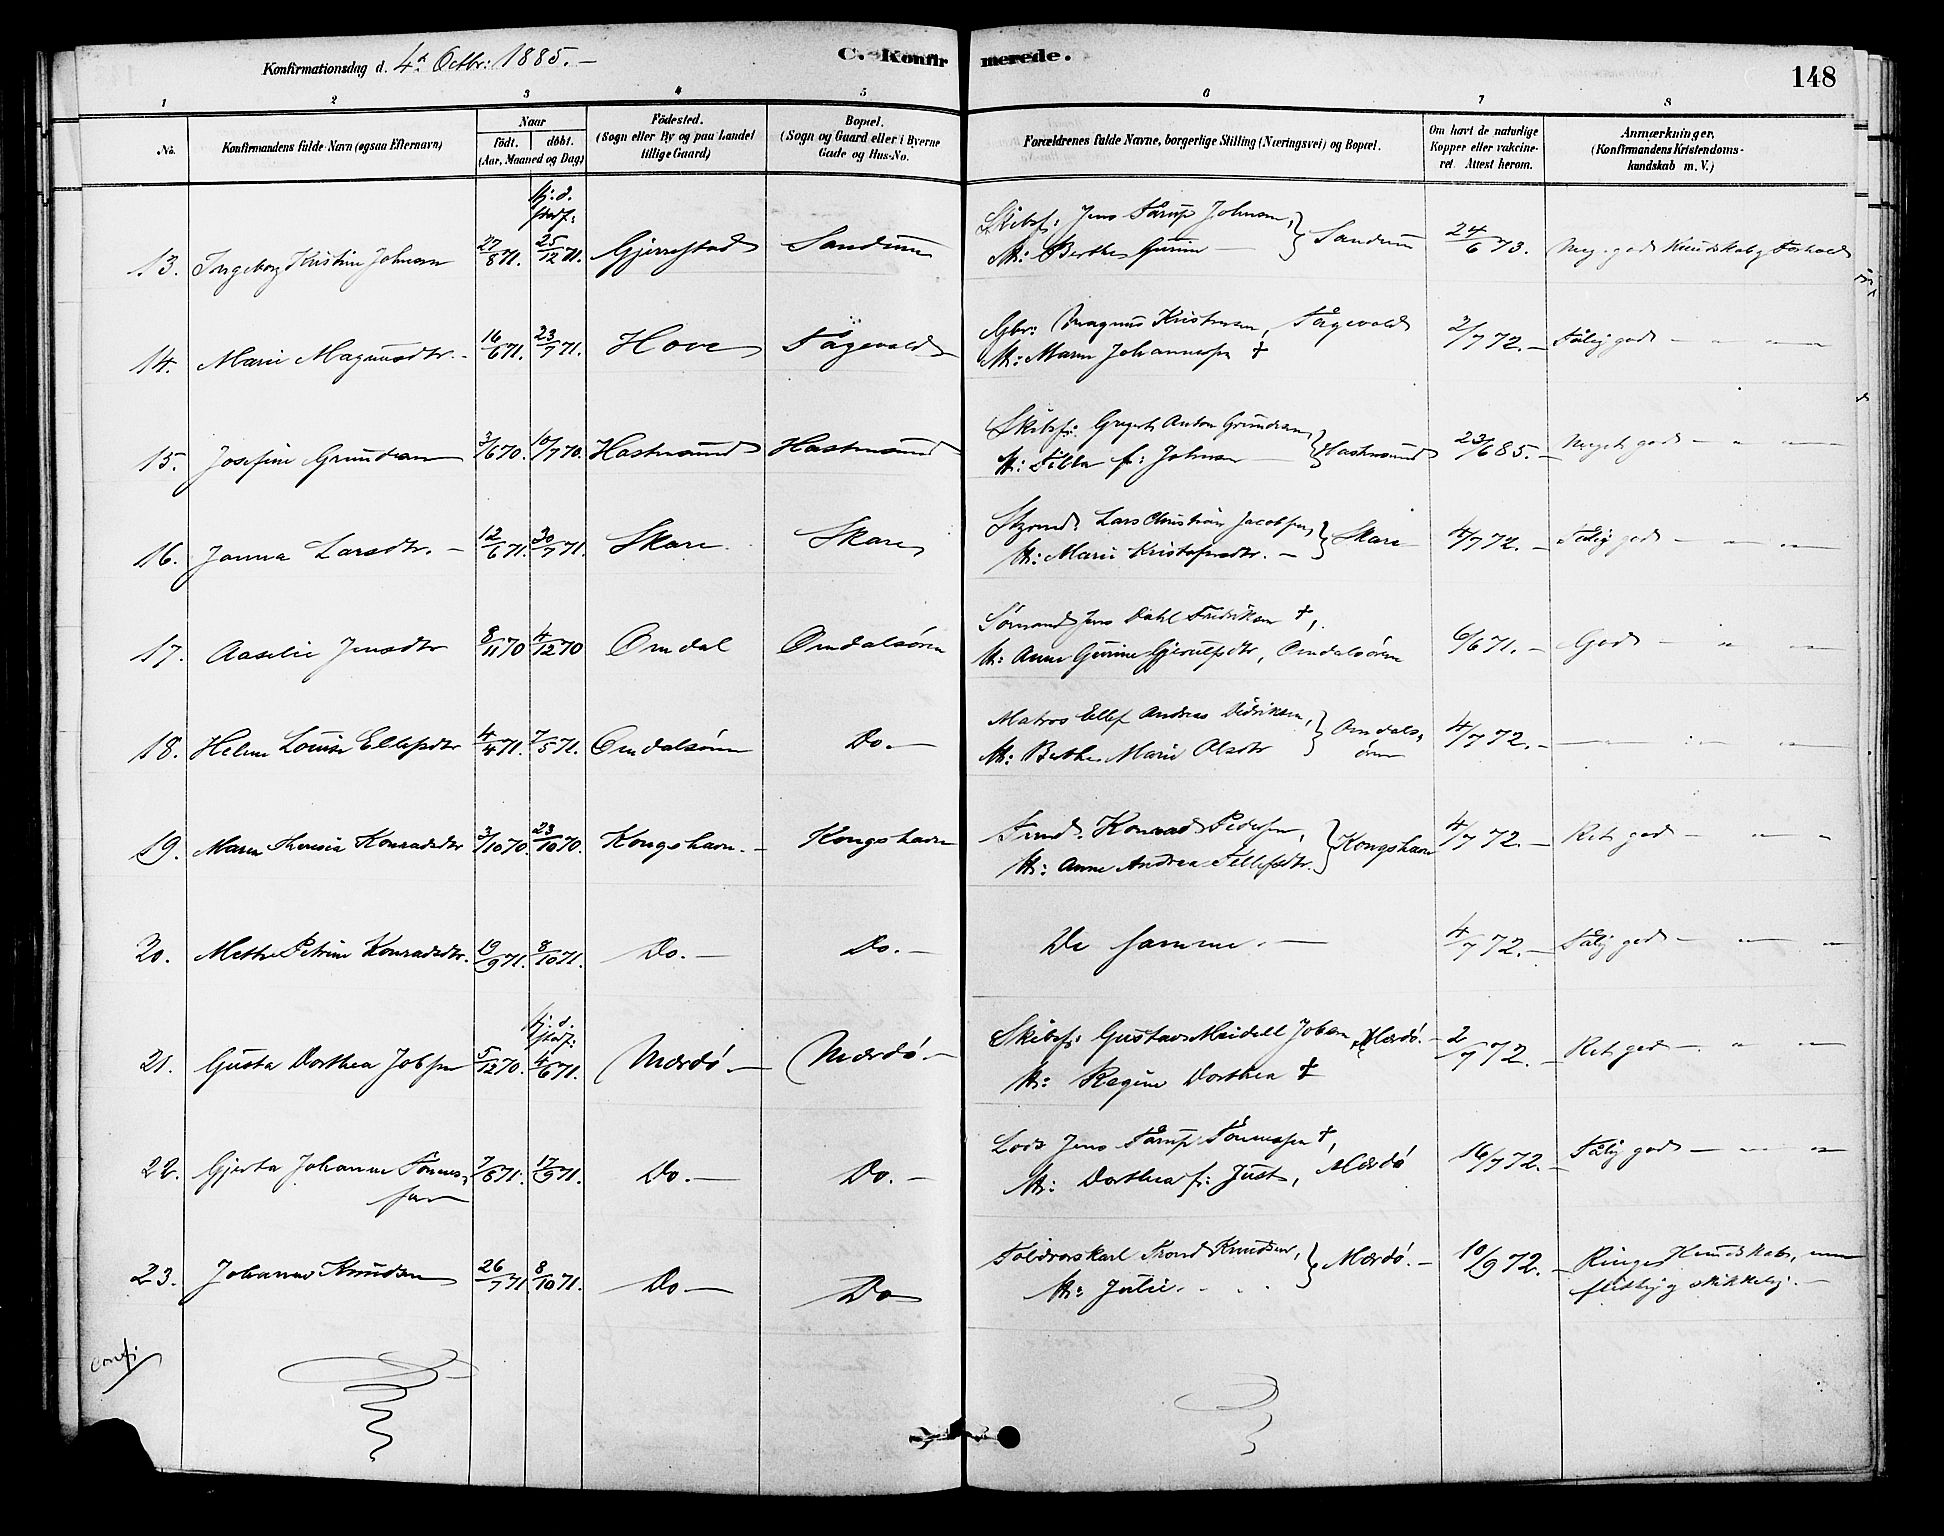 Konfirmationsdag d. 4de Octbr: 1885. –
C. Konfirmerede.
148
1 2 3 4 5 6 7 8
No.
Konfirmandens fulde Navn (ogsaa Efternavn)
Naar
födt. döbt.
(Aar, Maaned og Dag)
Födested.
(Sogn eller By og paa Landet
tillige Gaard)
Bopæl.
(Sogn og Gaard eller i Byerne
Gade og Hus-No.
Forældrenes fulde Navne, borgerlige Stilling (Næringsvei) og Bopæl.
Om havt de naturlige
Kopper eller vakcine-
ret. Attest herom.
Anmærkninger,
(Konfirmandens Kristendoms-
kundskab m. V.)
hj. d.
stadf:
13. Ingeborg Kristine Johnsen 27/8 71. 25/12 71. Gjerrestad Sandum Skibsf: Jens Tärup Johnsen, } Sandum 24/6 73. Meg. god Kundskab og Forhold
H: Berthe Gurine –
14. Marie Magnusdtr. 16/6 71. 23/7 71. Hove Tågevold Gbr: Magnus Kristensen, Tågevold 2/7 72. – Tålig god – " –
H: Maren Johannesen †
15. Josefine Grundesen 3/6 70. 10/7 70. Hastensund Hastensund Skibsf: Gregert Anton Grundesen, } Hastensund 23/6 85. – Meget god – " –
H: Tilla f: Johnsen –
16. Janna Larsdtr. – 12/6 71. 30/7 71. Skare Skare Styrmd. Lars Christian Jacobsen, } Skare 4/7 72. – Tålig god – " –
H: Marie Kristofersdtr. –
17. Aaselie Jensdtr 8/11 70 4/12 70 Omdal Omdalsøren Sømand Jens Dahl Fredriksen †, 6/6 71. – God – " –
H: Anne Gurine Gjerulfsdtr, Omdalsøren
18. Helene Louise Ellefsdtr 4/4 71. 7/5 71. Omdalsøren Do. – Matros Ellef Andreas Didriksen, } Omdals- 4/7 72. – – " –
H: Berthe Marie Olsdtr øren
19. Maren Theresia Konradsdtr 3/10 70. 23/10 70. Kongshavn. – Kongshavn Tmd. Konrad Pedersen, } Kongshavn 4/7 72. – Ret god – " –
H: Anne Andrea Tellefsdtr.
20. Methe Petrine Konradsdtr. 19/9 71. 8/10 71. Do. – Do. – De samme. – 4/7 72. – Tålig god – " –
hj. d.
stadf:
21. Gusta Dorthea Jobsen 5/12 70. 4/6 71. Mærdö – Mærdö. – Skibsf: Gustav Meidell Jobsen, Mærdö. – 2/7 72. – Ret god – " –
H: Regine Dorthea †
22. Gjerta Johanne Tønnes- 7/8 71. 17/9 71. Do. – Do. – Lods Jens Tärup Tønnesen †, 16/7 72. – Tålig god – " –
sen H: Dorthea f: Just, Mærdö
23. Johanne Knudsen 26/7 71. 8/10 71. Do – Do Toldrorskarl Trond Knudsen, } Mærdö. – 10/9 72. – Ringe Kundskab, men
H: Julie. . . . flittig og skikkelig. –
conf: